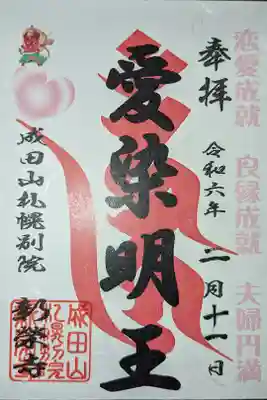 恋愛成就 良縁成就 夫婦円満
奉拝
令和六年 二月十一日
愛染明王
成田山札幌別院
新栄寺